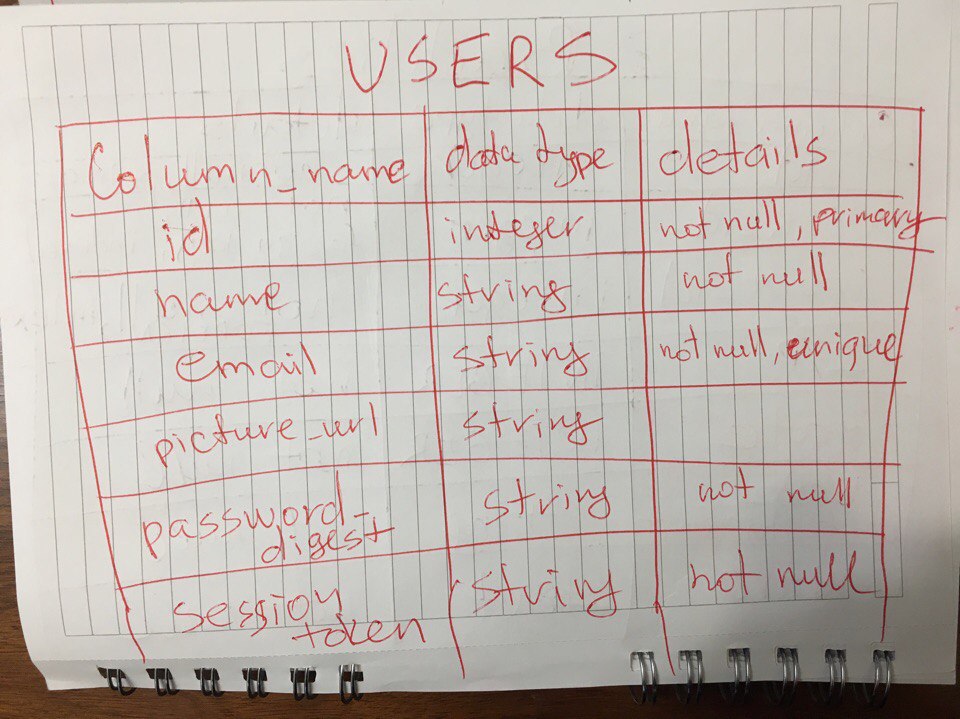 USERS
Column_name data type details
id integer not null, primary
name string not null
email string not null, unique
picture_url string
password_
digest string not null
session
token string not null